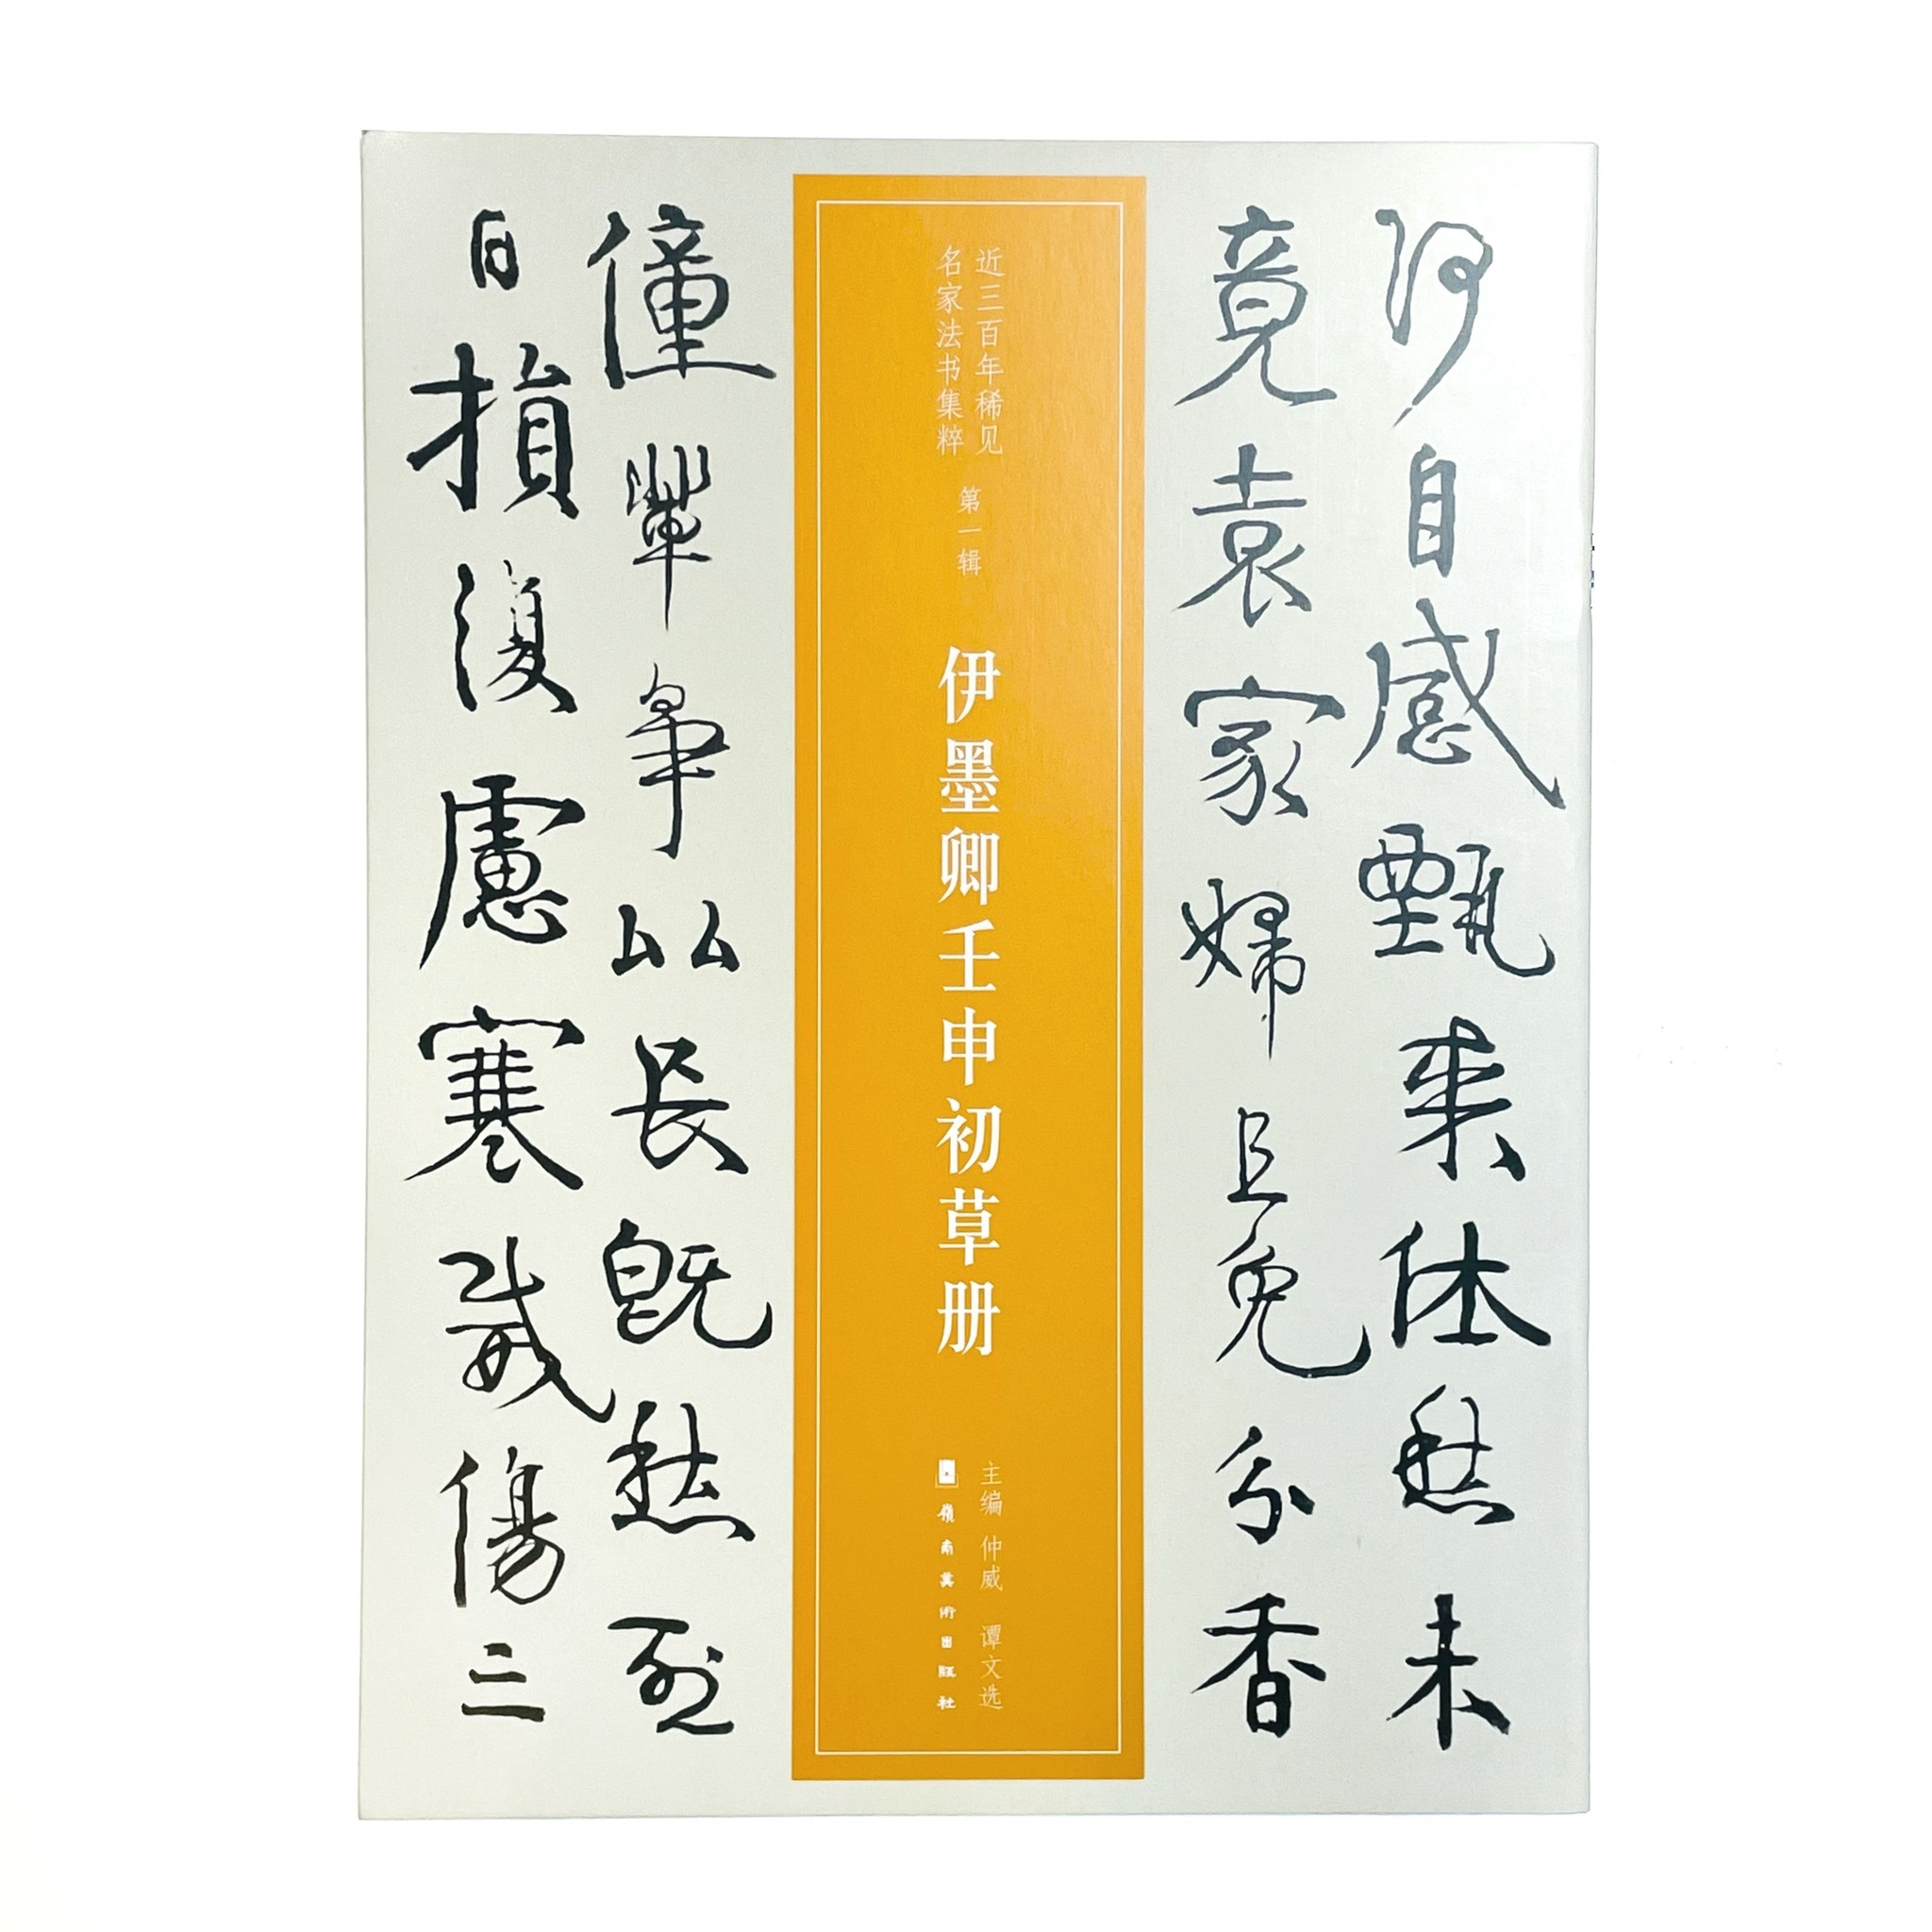 何自感甄来休愁未
竟袁家婦且免分香
近三百年稀见
名家法书集粹
第一辑
伊墨卿壬申初草册
主编 仲威 谭文选
嶺南美術出版社
僮輩爭以長既愁
日損復慮寒歲傷三